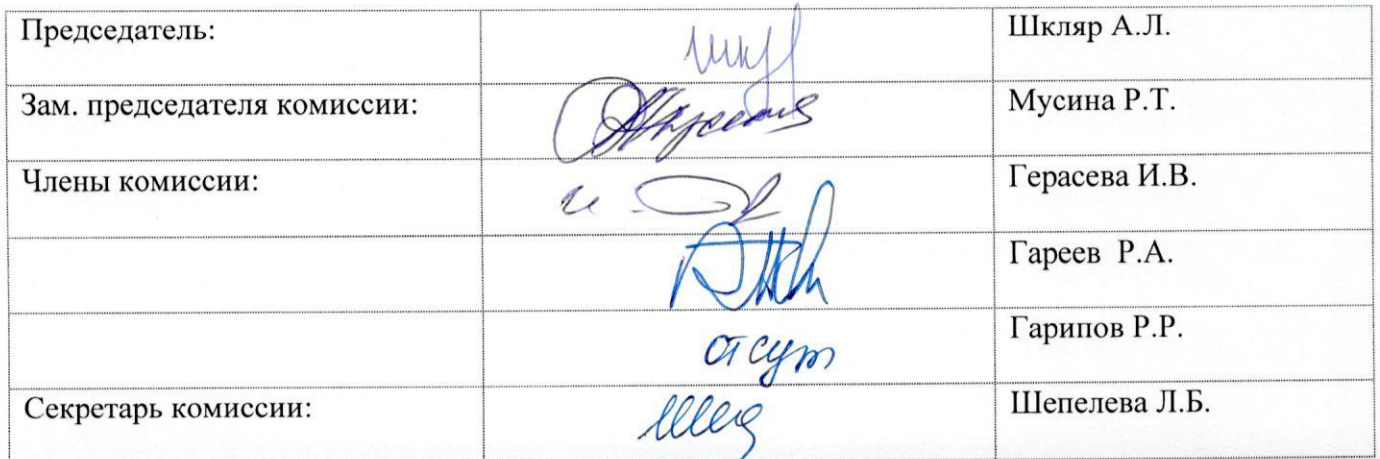 Председатель: Шкляр А.Л.
Зам. председателя комиссии: Мусина Р.Т.
Члены комиссии: Герасева И.В.
Гареев Р.А.
отсут Гарипов Р.Р.
Секретарь комиссии: Шепелева Л.Б.